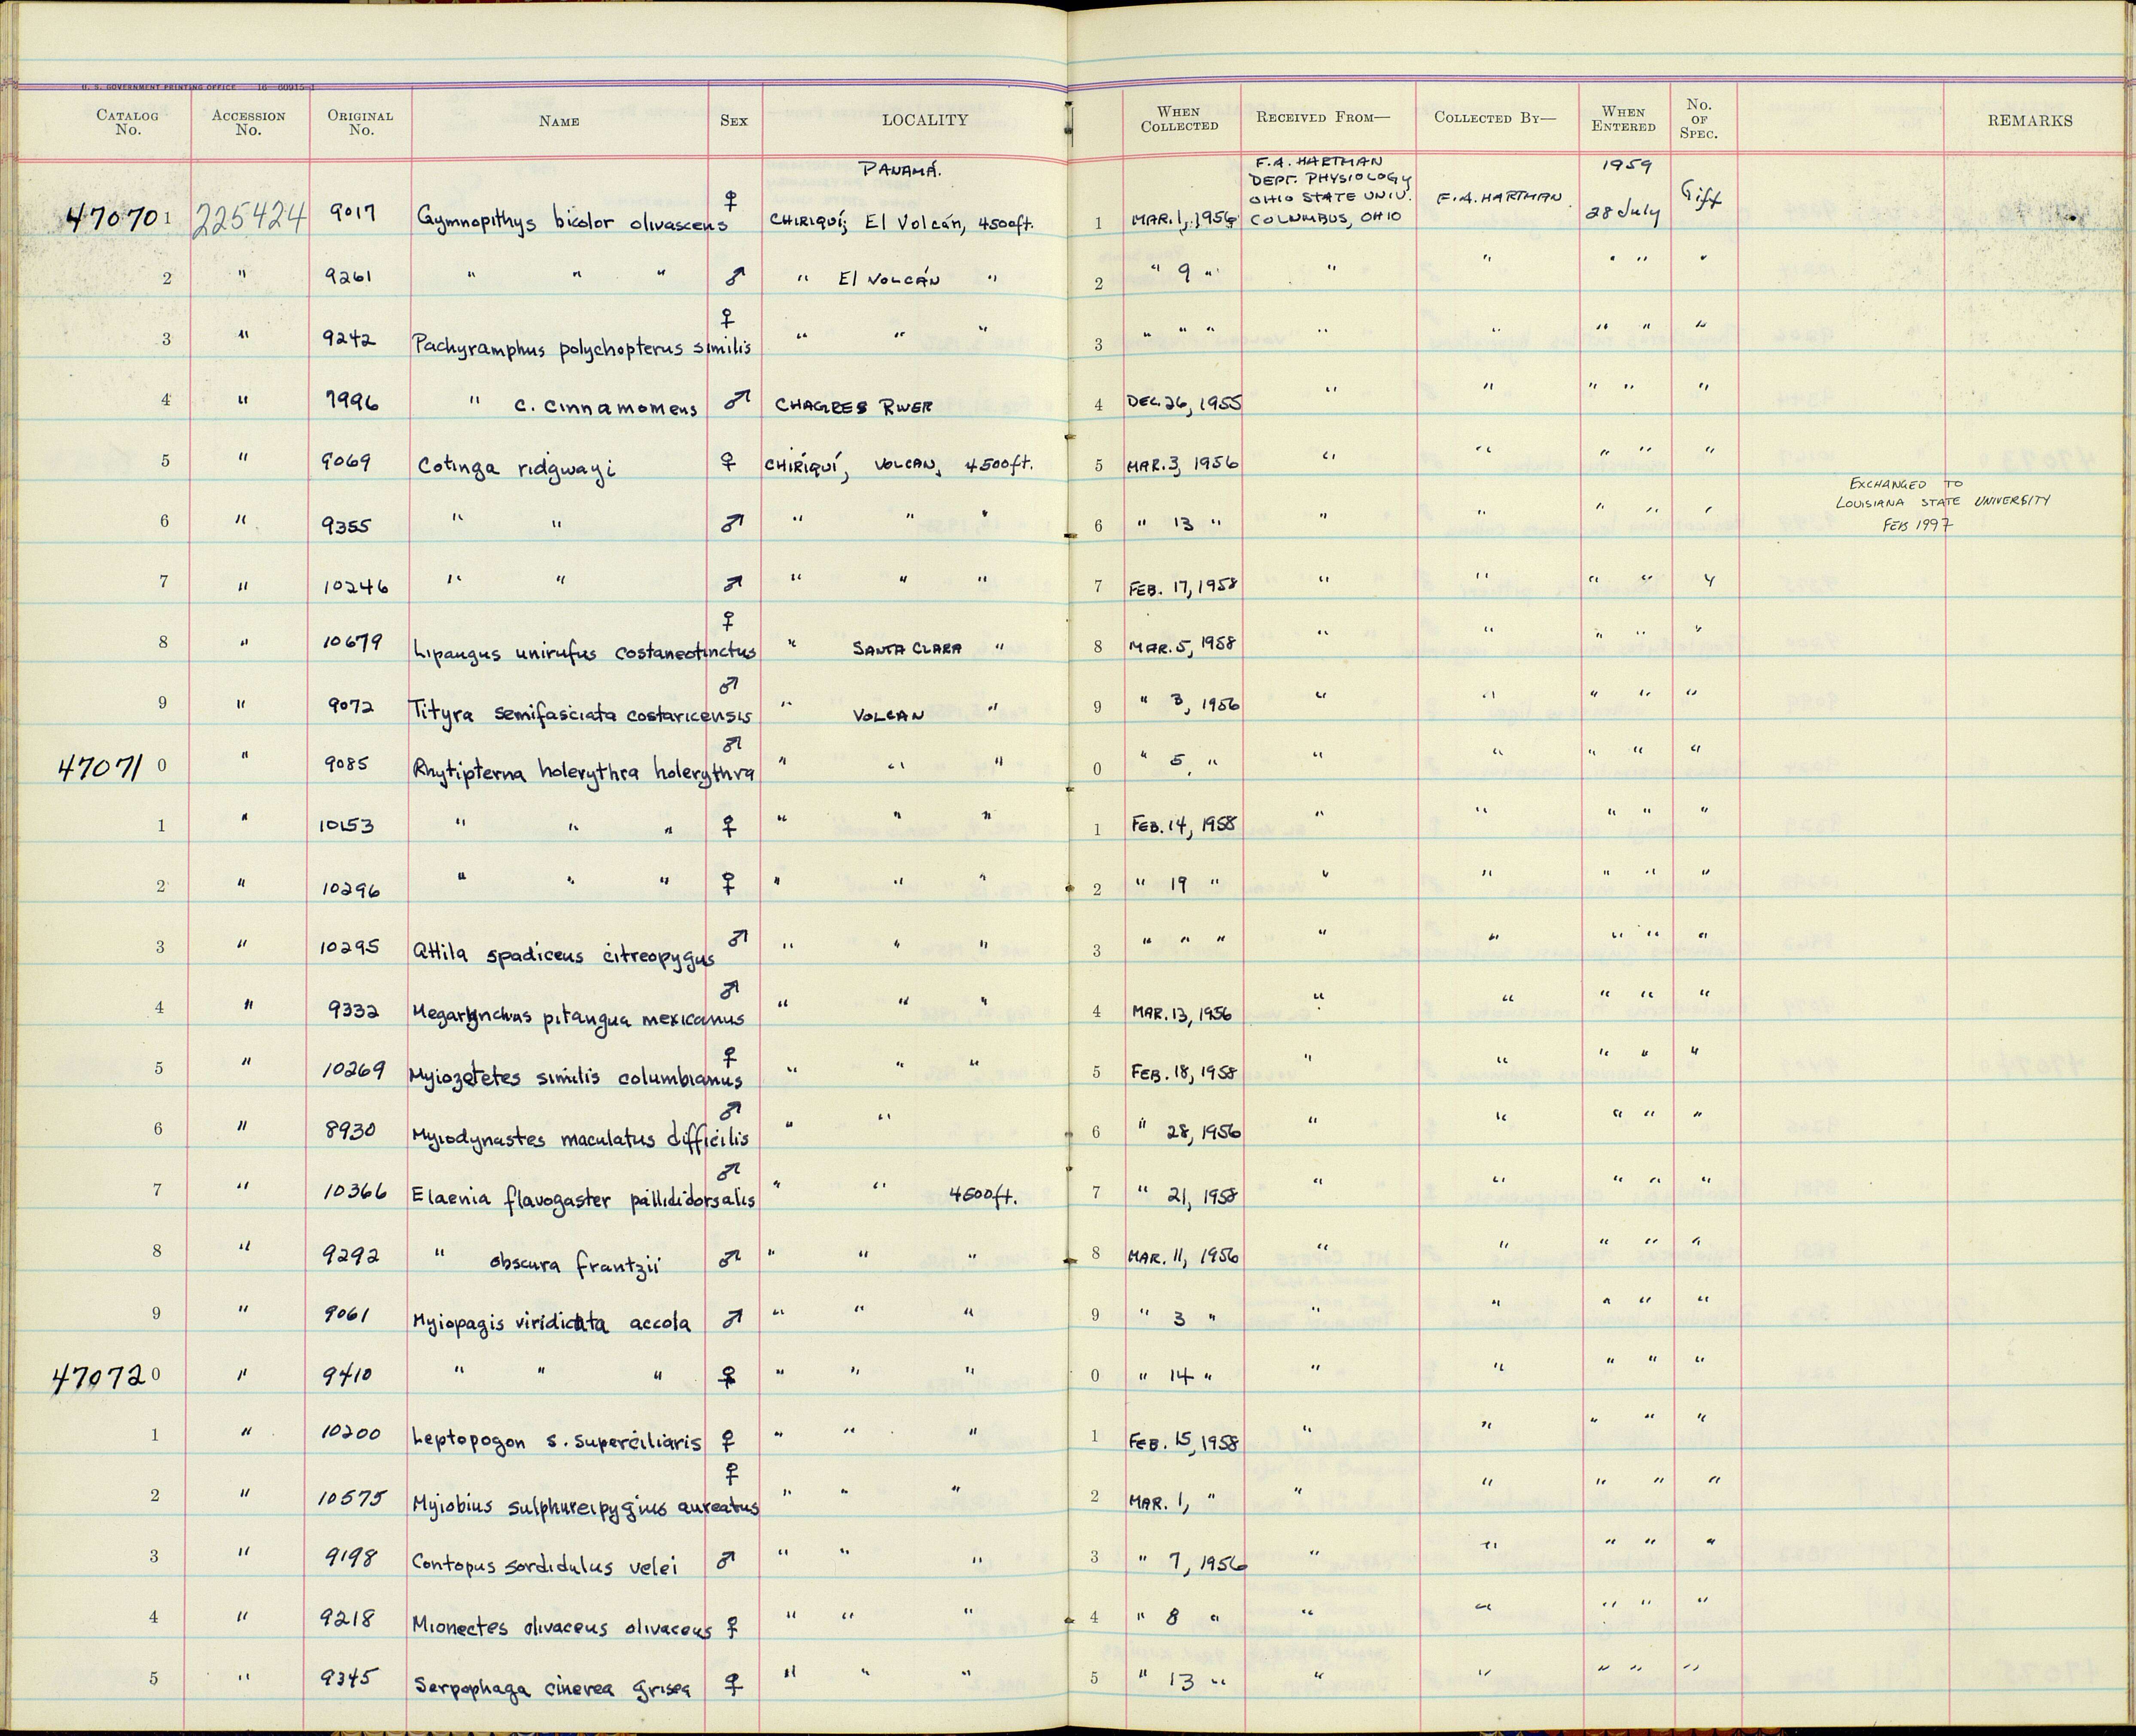 U. S. GOVERNMENT PRINTING OFFICE 16—60915-1
CATALOG No. ACCESSION No. ORIGINAL No. NAME SEX LOCALITY WHEN COLLECTED RECEIVED FROM— COLLECTED BY— WHEN ENTERED No. OF SPEC. REMARKS
PANAMÁ. F.A. HARTMAN 1959
DEPT. PHYSIOLOGY
OHIO STATE UNIV.
470701 225424 9017 Gymnopithys bicolor olivascens ♀ CHIRIQUÍ; El Volcán, 4500ft. 1 MAR. 1, 1956 COLUMBUS, OHIO F.A. HARTMAN 28 July Gift
2 " 9261 " " " ♂ " El VOLCÁN " 2 " 9 " " " " " "
3 " 9242 Pachyramphus polychopterus similis ♀ " " " 3 " " " " " " " "
4 " 7996 " c. cinnamomeus ♂ CHAGRES RIVER 4 DEC. 26, 1955 " " " " "
5 " 9069 Cotinga ridgwayi ♀ CHIRIQUÍ, VOLCAN, 4500ft. 5 MAR. 3, 1956 " " " " "
EXCHANGED TO
LOUISIANA STATE UNIVERSITY
6 " 9355 " " ♂ " " " 6 " 13 " " " " " " FEB 1997
7 " 10246 " " ♂ " " " 7 FEB. 17, 1958 " " " " "
8 " 10679 Lipaugus unirufus costaneotinctus ♀ " SANTA CLARA " 8 MAR. 5, 1958 " " " " "
9 " 9072 Tityra semifasciata costaricensis ♂ " VOLCAN " 9 " 3, 1956 " " " " "
470710 " 9085 Rhytipterna holerythra holerythra ♂ " " " 0 " 5, " " " " " "
1 " 10153 " " " ♀ " " " 1 FEB. 14, 1958 " " " " "
2 " 10296 " " " ♀ " " " 2 " 19 " " " " " "
3 " 10295 Attila spadiceus citreopygus ♂ " " " 3 " " " " " " " "
4 " 9332 Megarynchus pitangua mexicanus ♂ " " " 4 MAR. 13, 1956 " " " " "
5 " 10269 Myiozetetes similis columbianus ♀ " " " 5 FEB. 18, 1958 " " " " "
6 " 8930 Myiodynastes maculatus difficilis ♂ " " 6 " 28, 1956 " " " " "
7 " 10366 Elaenia flavogaster pallididorsalis ♂ " " 4500ft. 7 " 21, 1958 " " " " "
8 " 9292 " obscura frantzii ♂ " " " 8 MAR. 11, 1956 " " " " "
9 " 9061 Myiopagis viridicata accola ♂ " " " 9 " 3 " " " " " "
470720 " 9410 " " " ♀ " " " 0 " 14 " " " " " "
1 " 10200 Leptopogon s. superciliaris ♀ " " " 1 FEB. 15, 1958 " " " " "
2 " 10575 Myiobius sulphureipygius aureatus ♀ " " " 2 MAR. 1, " " " " " "
3 " 9198 Contopus sordidulus velei ♂ " " " 3 " 7, 1956 " " " " "
4 " 9218 Mionectes olivaceus olivaceus ♀ " " " 4 " 8 " " " " " "
5 " 9345 Serpophaga cinerea grisea ♀ " " " 5 " 13 " " " " " "